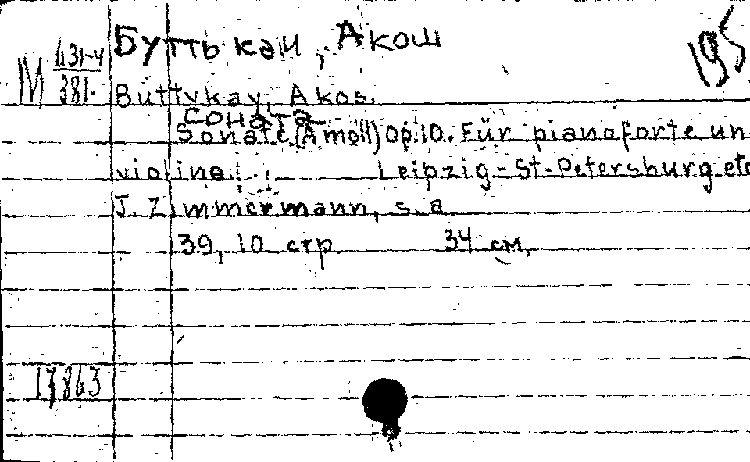 Буттькаи, Акош
М 431-4
381.
195
Buttykay, Akos.
Соната
Sonate (A moll) Op.10. Für pianoforte un
violine. Leipzig-St-Petersburg etc
J. Zimmermann, s.a
39, 10 стр 34 см.
17863